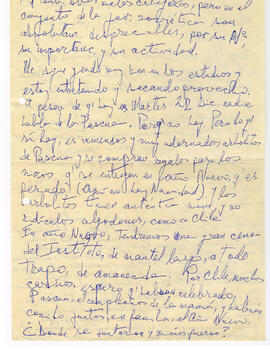 conjunto de la juv. soviética son
absolutam. despreciables, por su Nº,
su importanc. y su actividad.
Me sigue yendo muy bien en los estudios y
estoy entendiendo y sacando provecho.
A pesar de q' hoy es Martes 22 Dic. nadie
habla de la Pascua. Porq' no hay. Pero lo q'
sí hay, es inmensos y muy adornados arbolitos
de Pascua y se compran regalos para los
niños y se entregan en año Nuevo, q' es
feriado (Aquí no hay Navidad) y los
arbolitos tienen auténtica nieve, y no
ridículos algodones, como en Chile
En año Nuevo, tendremos una gran cena
del Instituto, de mantel largo, a todo
trapo, de amanecida. Por Chile, muchos
cariños, espero q' habrán celebrado,
Pascua, el cumpleaños de la mamá, y habrán
comido juntos, en familia, el Año Nuevo.
¿Donde se juntaron y quienes fueron?